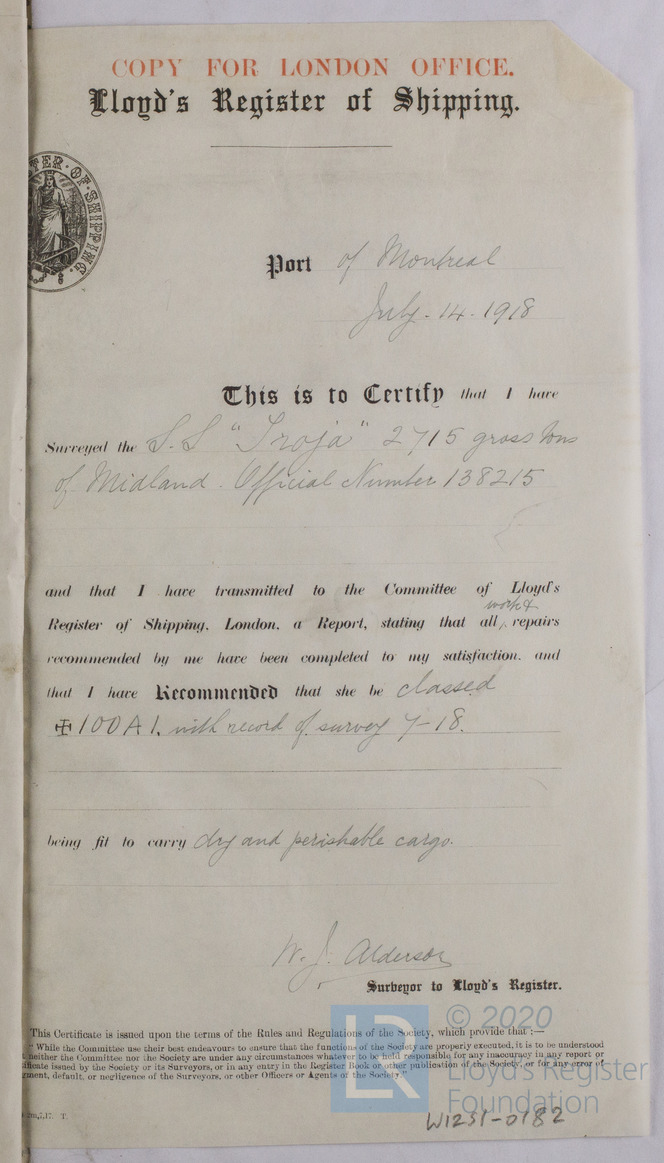 COPY FOR LONDON OFFICE.
Lloyd's Register of Shipping.
TER · OF · SHIPPING.
Port of Montreal
July - 14 - 1918
This is to Certify that I have
Surveyed the S.S "Troja" 2715 gross tons
of Midland. Official Number 138215
and that I have transmitted to the Committee of Lloyd's
work &
Register of Shipping, London, a Report, stating that all repairs
recommended by me have been completed to my satisfaction, and
that I have Recommended that she be classed
✠ 100 A 1. with record of survey 7-18.
being fit to carry dry and perishable cargo.
W. J. Alderson
Surveyor to Lloyd's Register.
This Certificate is issued upon the terms of the Rules and Regulations of the Society, which provide that :—
"While the Committee use their best endeavours to ensure that the functions of the Society are properly executed, it is to be understood
neither the Committee nor the Society are under any circumstances whatever to be held responsible for any inaccuracy in any report or
ificate issued by the Society or its Surveyors, or in any entry in the Register Book or other publication of the Society, or for any error of
ment, default, or negligence of the Surveyors, or other Officers or Agents of the Society."
m,7,17. T.
LR
© 2020
Lloyd's Register
Foundation
W1231-0182